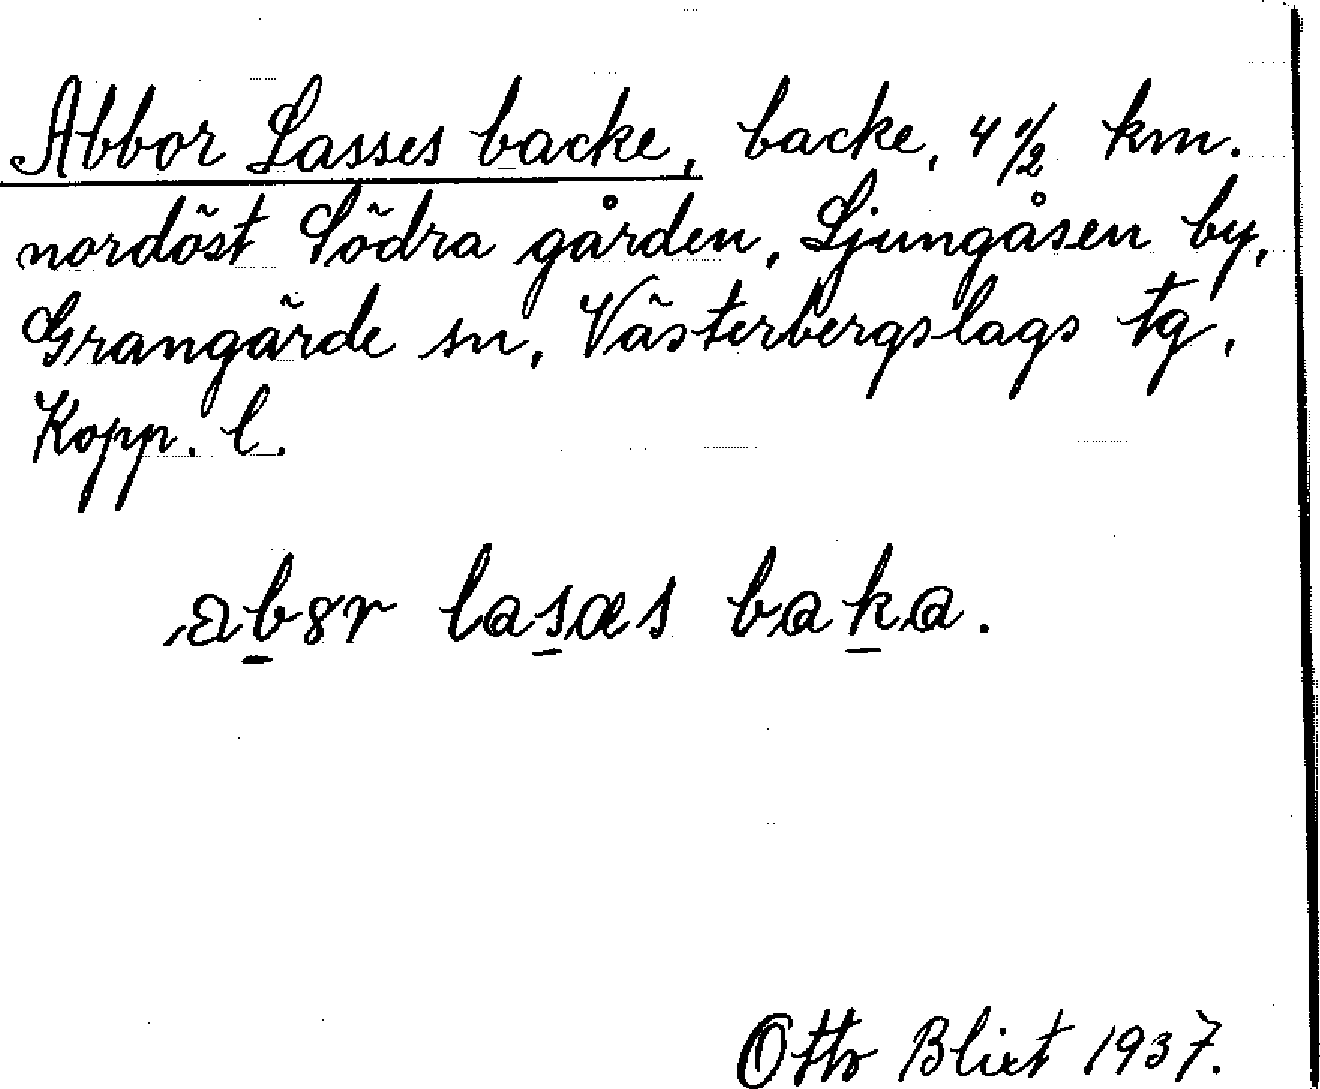 Abbor Lasses backe, backe, 4 1/2 km.
nordöst Södra gården, Ljungåsen by,
Grangärde sn, Västerbergslags tg,
Kopp. l.
abɞr lasæs baka.
Otto Blixt 1937.